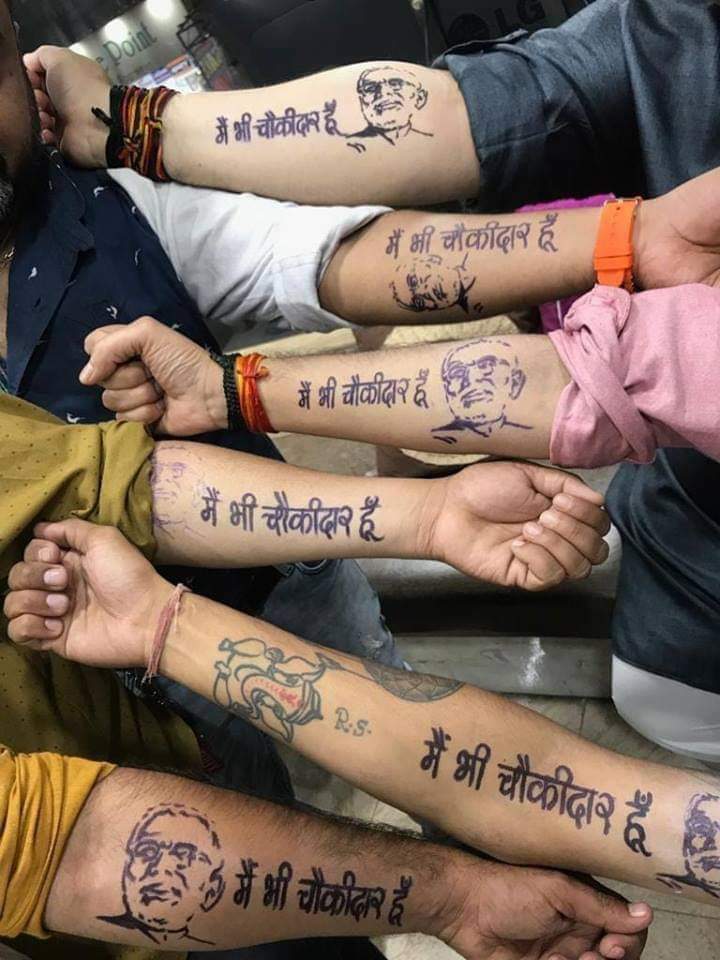 Point
LG
मैं भी चौकीदार हूँ
मैं भी चौकीदार हूँ
मैं भी चौकीदार हूँ
मैं भी चौकीदार हूँ
R.S.
मैं भी चौकीदार हूँ
मैं भी चौकीदार हूँ